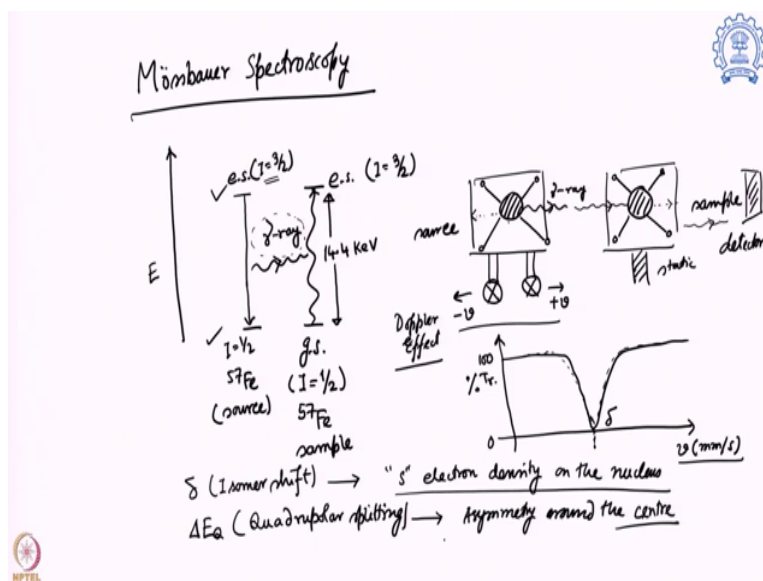 Mössbauer Spectroscopy
E
e.s. (I=3/2)
e.s. (I=3/2)
γ-ray
14.4 KeV
I=1/2
57Fe
(source)
g.s.
(I=1/2)
57Fe
sample
source
γ-ray
sample
detector
static
-ϑ
+ϑ
Doppler
Effect
100
% Tr.
0
δ
ϑ (mm/s)
δ (Isomer shift) → "s" electron density on the nucleus
ΔEQ (Quadrupolar splitting) → Asymmetry around the centre
NPTEL